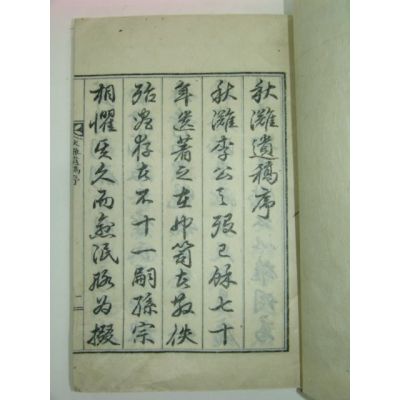 秋灘遺稿序
秋灘李公之歿已餘七十
年遺著之在巾笥者散佚
殆盡存者不十一嗣孫宗
相懼其久而愈泯略為掇
秋灘遺稿序 一